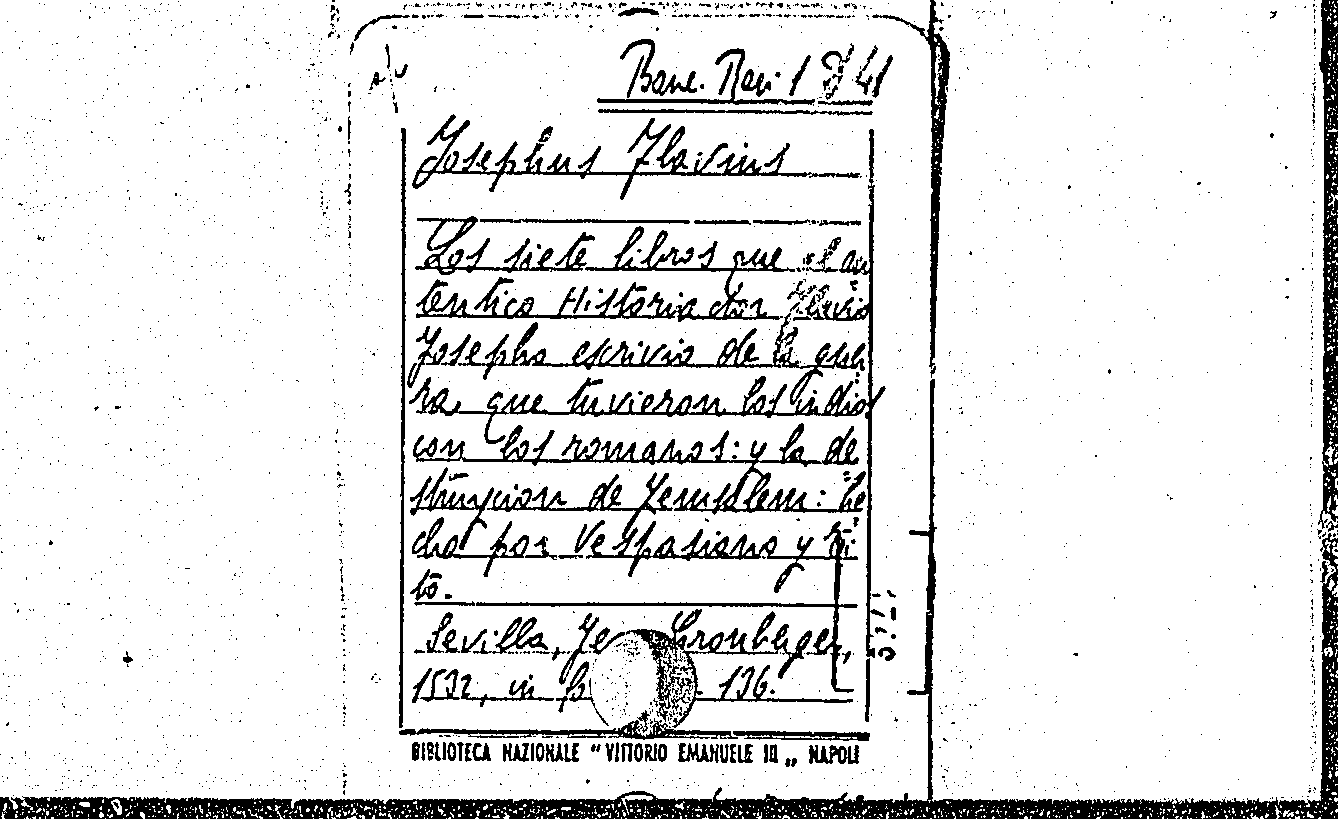 Josephus Flavius
Los siete libros que el au
tentico Historiador Flavio
Josepho escrivio de la guer
ra que tuvieron los indios
con los romanos: y la de
struycion de Jerusalem: he
cha por Vespasiano y Ti
to.
Sevilla, Cromberger,
1532, in 136.
BIBLIOTECA NAZIONALE "VITTORIO EMANUELE III„ NAPOLI